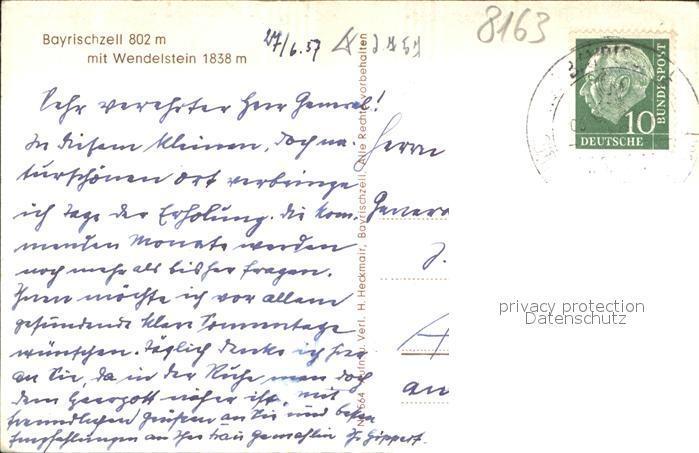 Bayrischzell 802 m
mit Wendelstein 1838 m
27/6.57
8163
Sehr verehrter Herr General!
In diesem kleinen, doch na-
turschönen Ort verbringe
ich Tage der Erholung. Die kom-
menden Monate werden
noch mehr als bisher fragen.
Ihnen möchte ich vor allem
gesundende klare Sommertage
wünschen. Täglich denke ich hier
an Sie, da in der Ruhe man doch
dem Herrgott näher ist. Mit
freundlichen Grüßen an Sie und besten
Empfehlungen an Ihre Frau Gemahlin Ihr Gippert.
Aufn. u. Verl. H. Heckmair, Bayrischzell, Alle Rechte vorbehalten
Herrn
General
J.
A
an
10
DEUTSCHE
BUNDESPOST
privacy protection
Datenschutz